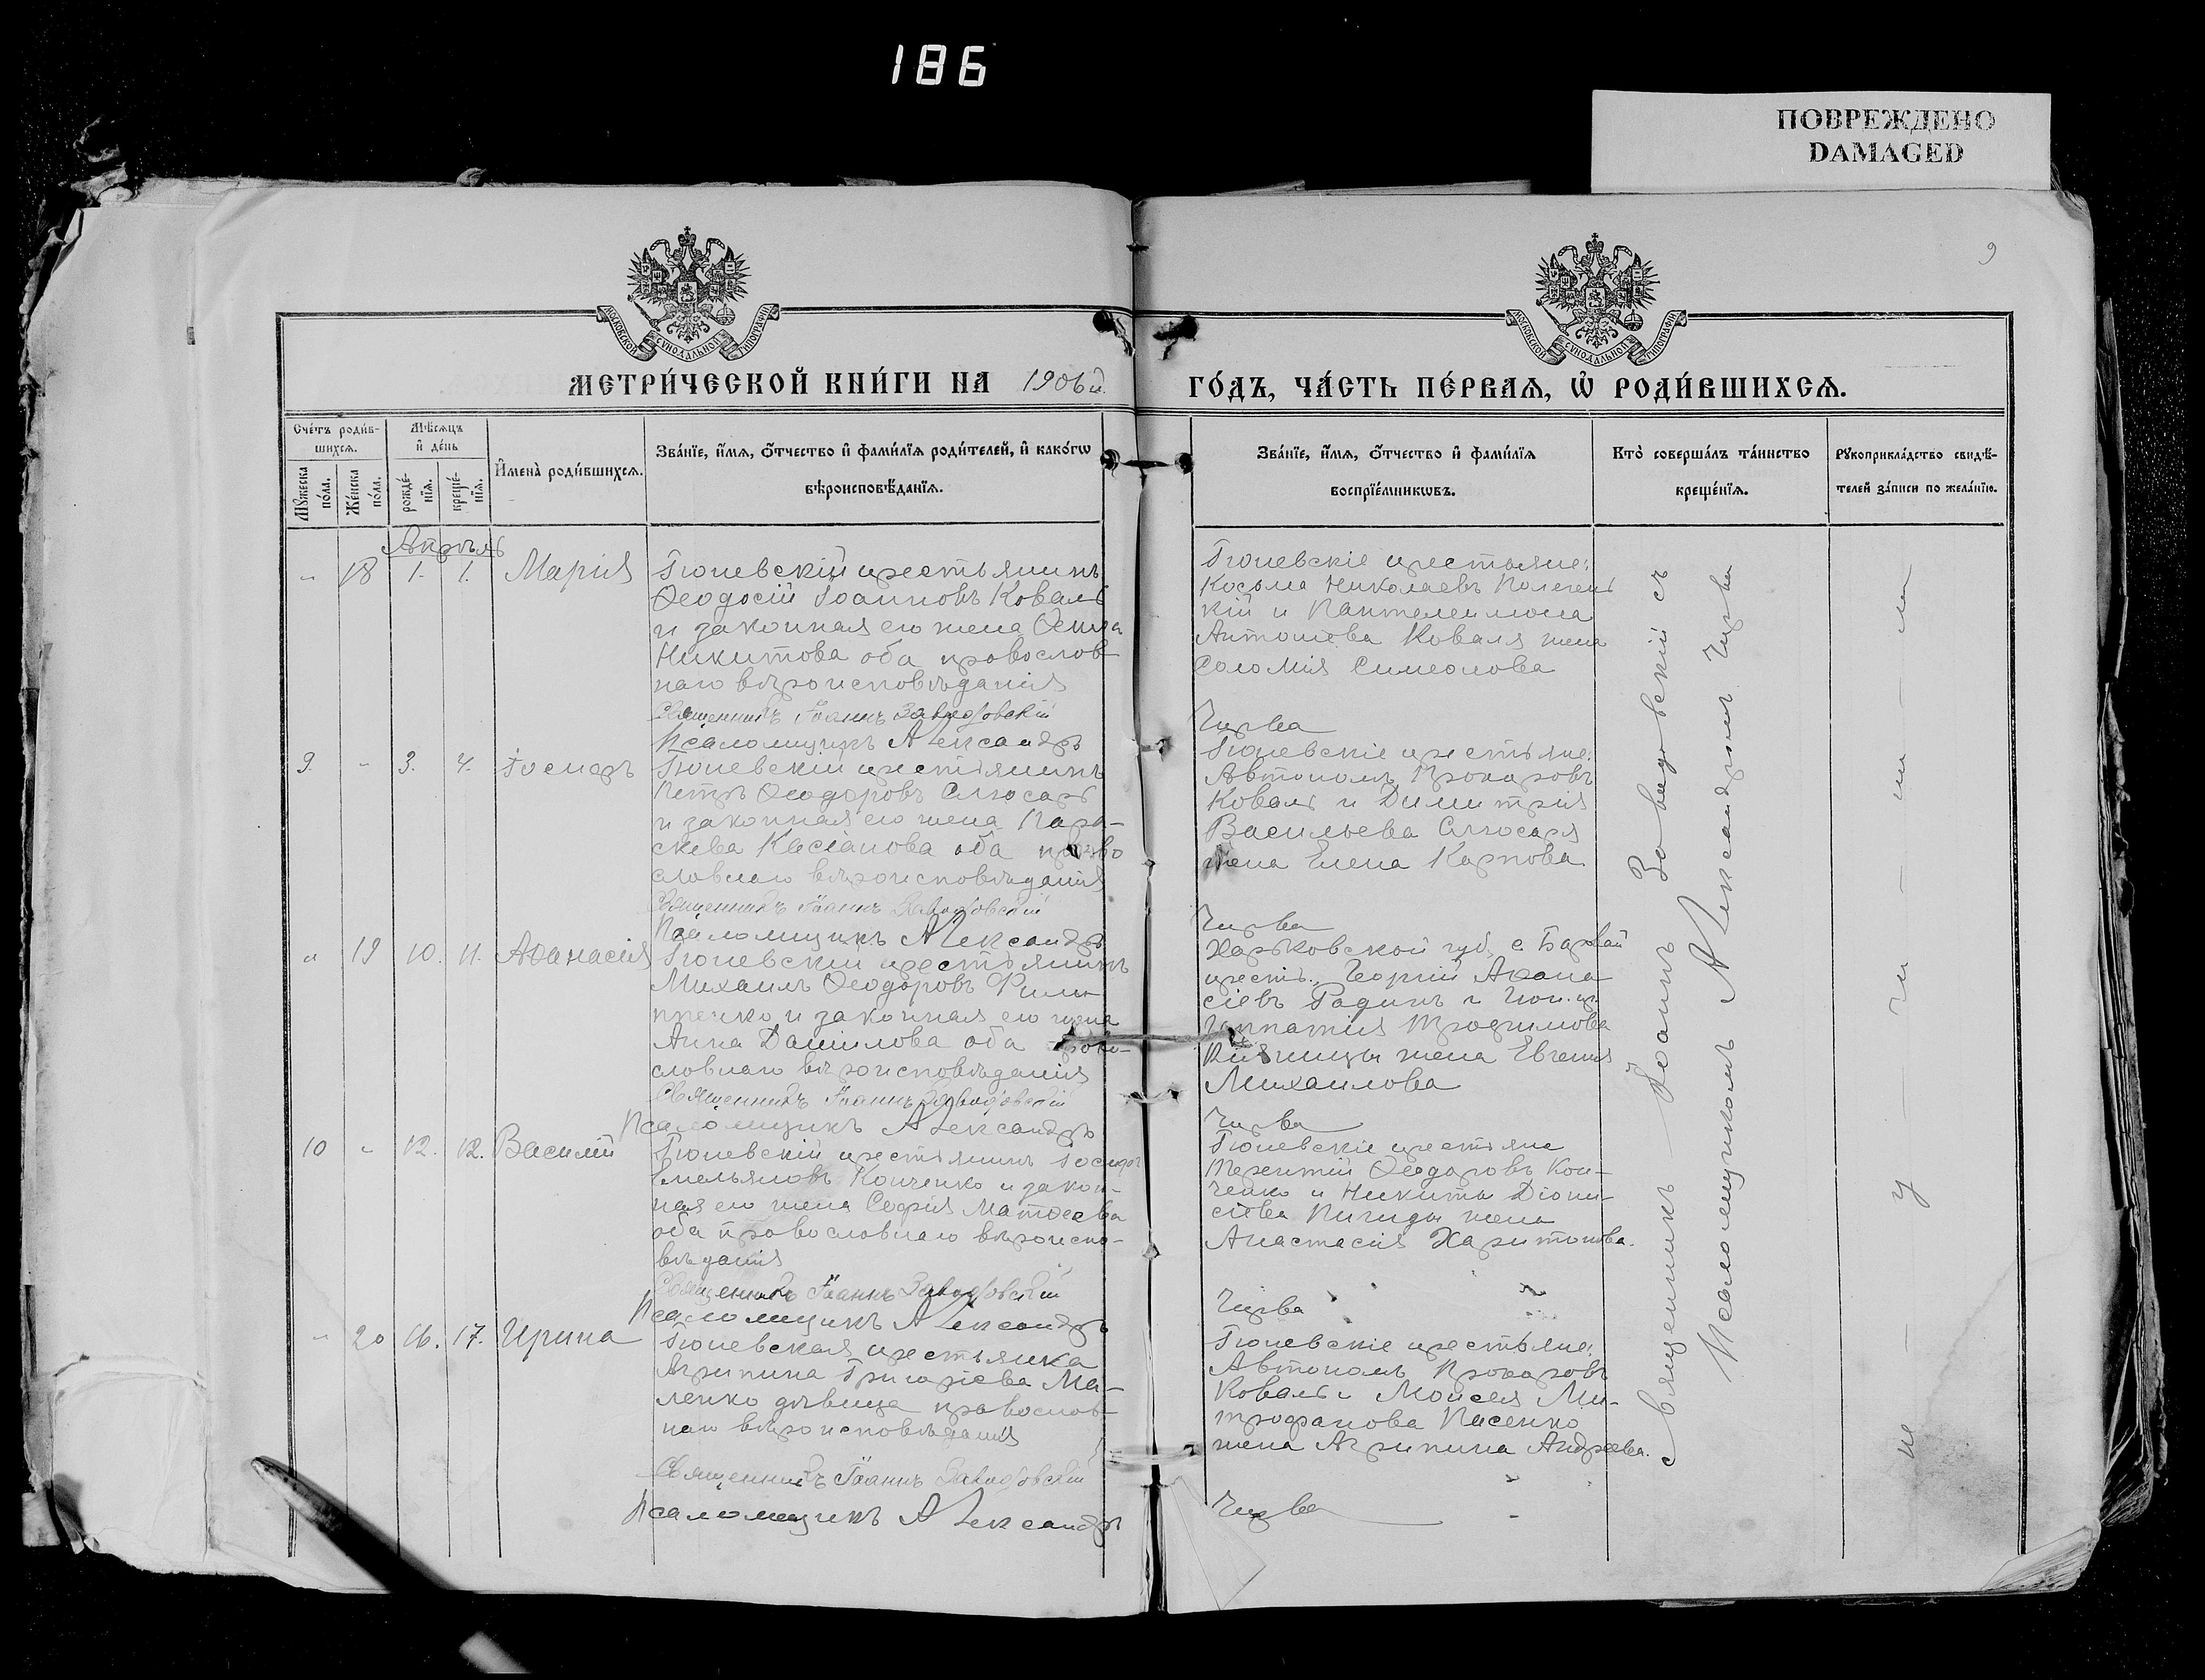 186
ПОВРЕЖДЕНО
DAMAGED
9
МОСКОВСКОЙ СУНОДАЛЬНОЙ ТИПОГРАФІИ
МОСКОВСКОЙ СУНОДАЛЬНОЙ ТИПОГРАФІИ
МЕТРИ́ЧЕСКОЙ КНИ́ГИ НА 1906й
ГО́ДЪ, ЧА́СТЬ ПЕ́РВАѦ, Ѽ РОДИ́ВШИХСѦ.
Сче́тъ роди́в-
шихсѧ.
Мꙋ́жеска
по́ла.
Же́нска
по́ла.
Мѣ́сѧцъ
и҆ де́нь
рожде́-
нїѧ.
креще́-
нїѧ.
И҆мена̀ роди́вшихсѧ.
Зва́нїе, и҆́мѧ, ѻ҆́тчество и҆ фами́лїѧ роди́телей, и҆ како́гѡ
вѣроисповѣ́данїѧ.
Зва́нїе, и҆́мѧ, ѻ҆́тчество и҆ фами́лїѧ
воспрїе́мникѡвъ.
Кто̀ соверша́лъ та́инство
креще́нїѧ.
Рꙋкоприкла́дство свидѣ́-
телей за́писи по жела́нїю.
Апрѣль
" 18 1. 1. Марія
Гюневскій крестьянинъ
Ѳеодосій Іоанновъ Коваль
и законная его жена
Никитова оба православ-
наго вѣроисповѣданія
Священникъ Іоаннъ Заводовскій
Псаломщикъ Александръ
Гюневскіе крестьяне:
Косьма Николаевъ
кій и Пантелеимона
Антоніева Коваля жена
Соломія Симеонова
Чирва
9. " 3. 4.
Гюневскій крестьянинъ
Петръ Ѳеодоровъ Слюсарь
и законная его жена Пара-
скева Касіанова оба право
славнаго вѣроисповѣданія
Священникъ Іоаннъ Заводовскій
Псаломщикъ Александръ
Гюневскіе крестьяне:
Автономъ Прохоровъ
Коваль и Димитрія
Васильева Слюсаря
жена Елена Карпова
Чирва
" 19 10. 11. Аѳанасія
Гюневскій крестьянинъ
Михаилъ Ѳеодоровъ Филип-
пенко и законная его жена
Анна Даніилова оба право-
славнаго вѣроисповѣданія
Священникъ Іоаннъ Заводовскій
Псаломщикъ Александръ
Харьковской губ. с.
крест. Георгій Аѳана
сіевъ Радинъ и Гюн. кр.
Игнатія Трофимова
жена Евгенія
Михаилова
Чирва
10 " 12. 12. Василій
Гюневскій крестьянинъ Іосифъ
Емельяновъ Конченко и закон-
ная его жена Софія Матѳеева
оба православнаго вѣроиспо-
вѣданія
Священникъ Іоаннъ Заводовскій
Псаломщикъ Александръ
Гюневскіе крестьяне
Терентій Ѳеодоровъ Кон-
ченко и Никиты Діони-
сіева жена
Анастасія Харитонова.
Чирва
" 20 16. 17. Ирина
Гюневская крестьянка
Агрипина Григоріева Ма-
ленко дѣвица православ-
наго вѣроисповѣданія
Священникъ Іоаннъ Заводовскій
Псаломщикъ Александръ
Гюневскіе крестьяне:
Автономъ Прохоровъ
Коваль и Моисея Ми-
трофанова Писенко
жена Агрипина Андреева.
Чирва
Священникъ Іоаннъ Заводовскій съ
Псаломщикомъ Александромъ Чирва